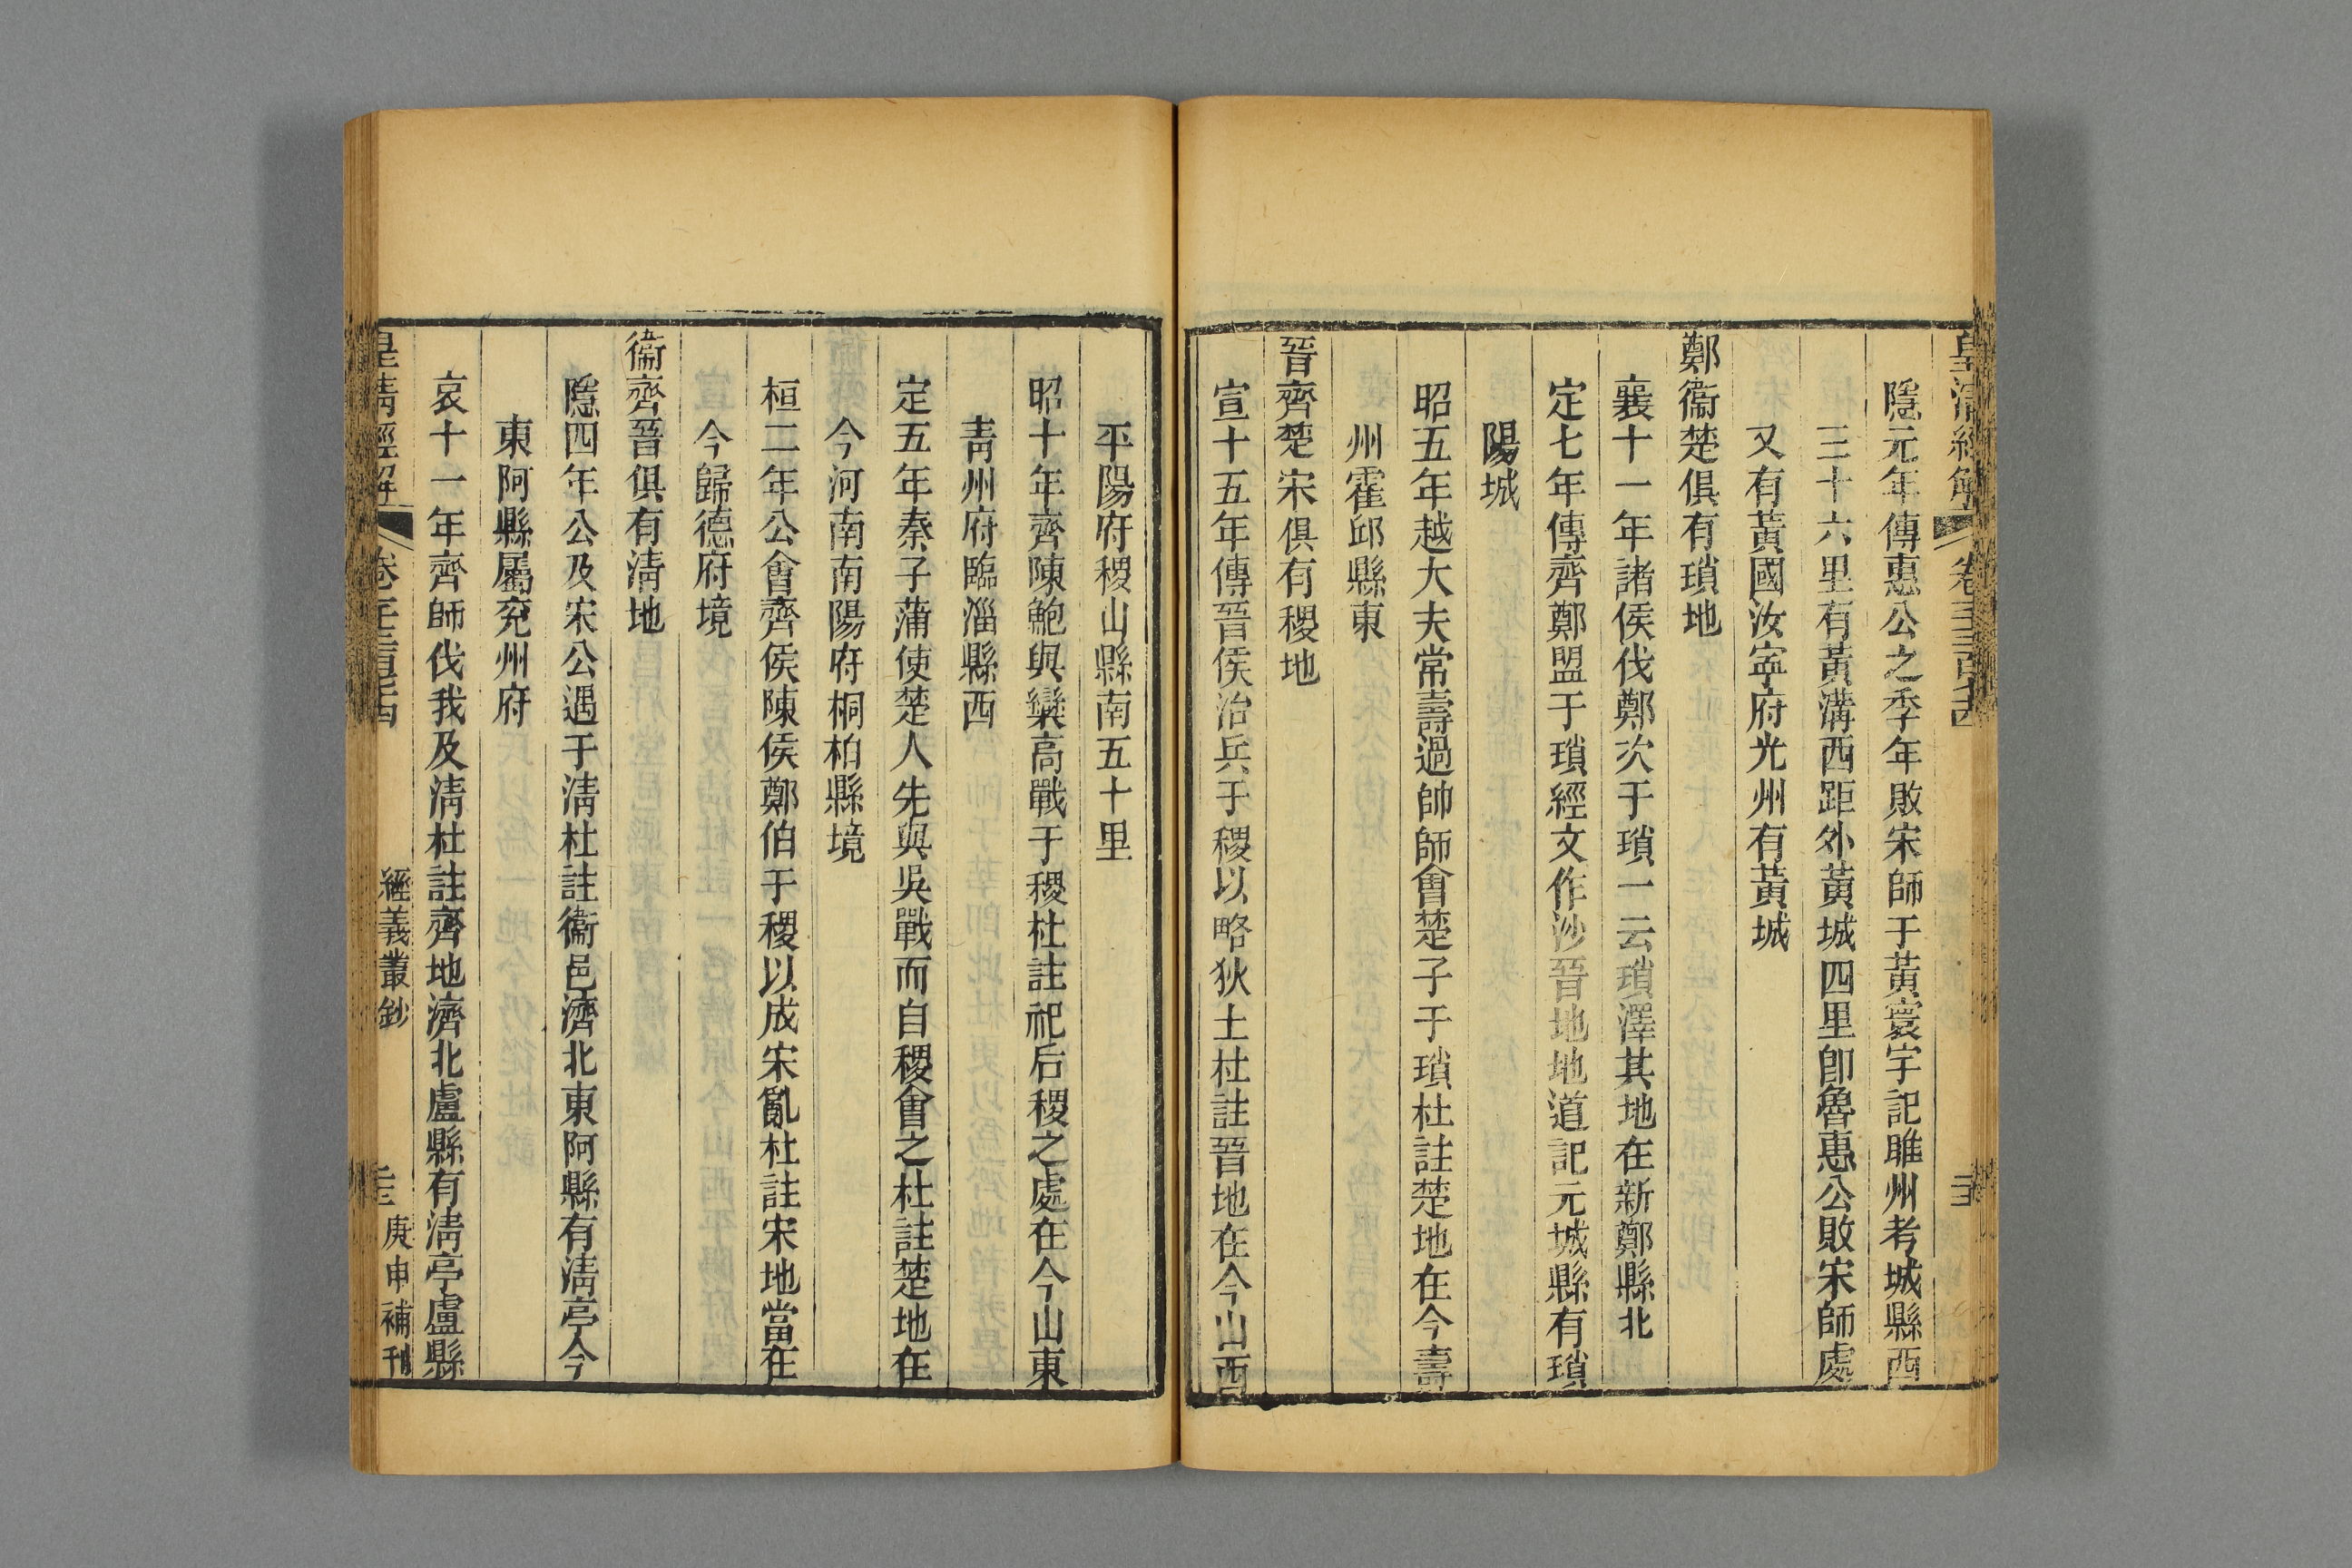 皇淸經解
隱元年傳惠公之季年敗宋師于黃寰宇記雎州考城縣西
三十六里有黃溝西距外黃城四里卽魯惠公敗宋師處
又有黃國汝寧府光州有黃城
鄭衞楚俱有瑣地
襄十一年諸侯伐鄭次于瑣一云瑣澤其地在新鄭縣北
定七年傳齊鄭盟于瑣經文作沙晉地地道記元城縣有瑣
陽城
昭五年越大夫常壽過帥師會楚子于瑣杜註楚地在今壽
州霍邱縣東
晉齊楚宋俱有稷地
宣十五年傳晉侯治兵于稷以略狄土杜註晉地在今山西
平陽府稷山縣南五十里
昭十年齊陳鮑與欒高戰于稷杜註祀后稷之處在今山東
靑州府臨淄縣西
定五年秦子蒲使楚人先與吳戰而自稷會之杜註楚地在
今河南南陽府桐柏縣境
桓二年公會齊侯陳侯鄭伯于稷以成宋亂杜註宋地當在
今歸德府境
衞齊晉俱有淸地
隱四年公及宋公遇于淸杜註衞邑濟北東阿縣有淸亭今
東阿縣屬兗州府
哀十一年齊師伐我及淸杜註齊地濟北盧縣有淸亭盧縣
皇淸經解
經義叢鈔
庚申補刊